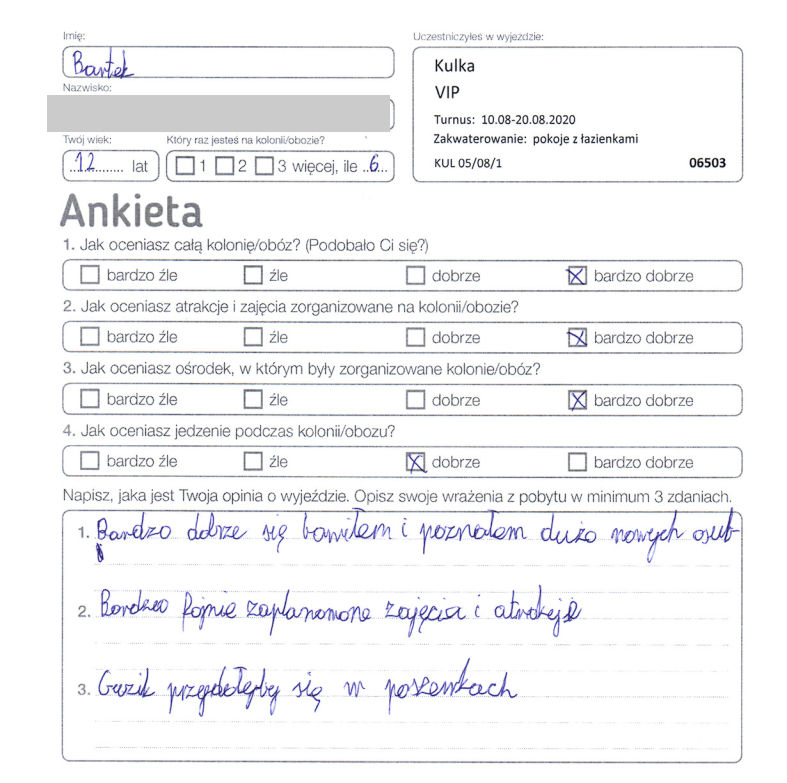 Imię:
Bartek
Uczestniczyłeś w wyjeździe:
Kulka
VIP
Turnus: 10.08-20.08.2020
Zakwaterowanie: pokoje z łazienkami
KUL 05/08/1 06503
Nazwisko:
Twój wiek:
..12........ lat
Który raz jesteś na kolonii/obozie?
1 2 3 więcej, ile ..6...
Ankieta
1. Jak oceniasz całą kolonię/obóz? (Podobało Ci się?)
bardzo źle źle dobrze bardzo dobrze
2. Jak oceniasz atrakcje i zajęcia zorganizowane na kolonii/obozie?
bardzo źle źle dobrze bardzo dobrze
3. Jak oceniasz ośrodek, w którym były zorganizowane kolonie/obóz?
bardzo źle źle dobrze bardzo dobrze
4. Jak oceniasz jedzenie podczas kolonii/obozu?
bardzo źle źle dobrze bardzo dobrze
Napisz, jaka jest Twoja opinia o wyjeździe. Opisz swoje wrażenia z pobytu w minimum 3 zdaniach.
1. Bardzo dobrze się bawiłem i poznałem dużo nowych osub
2. Bardzo fajnie zaplanowone zajęcia i atrakcje
3. Guzik przydałby się w poszewkach